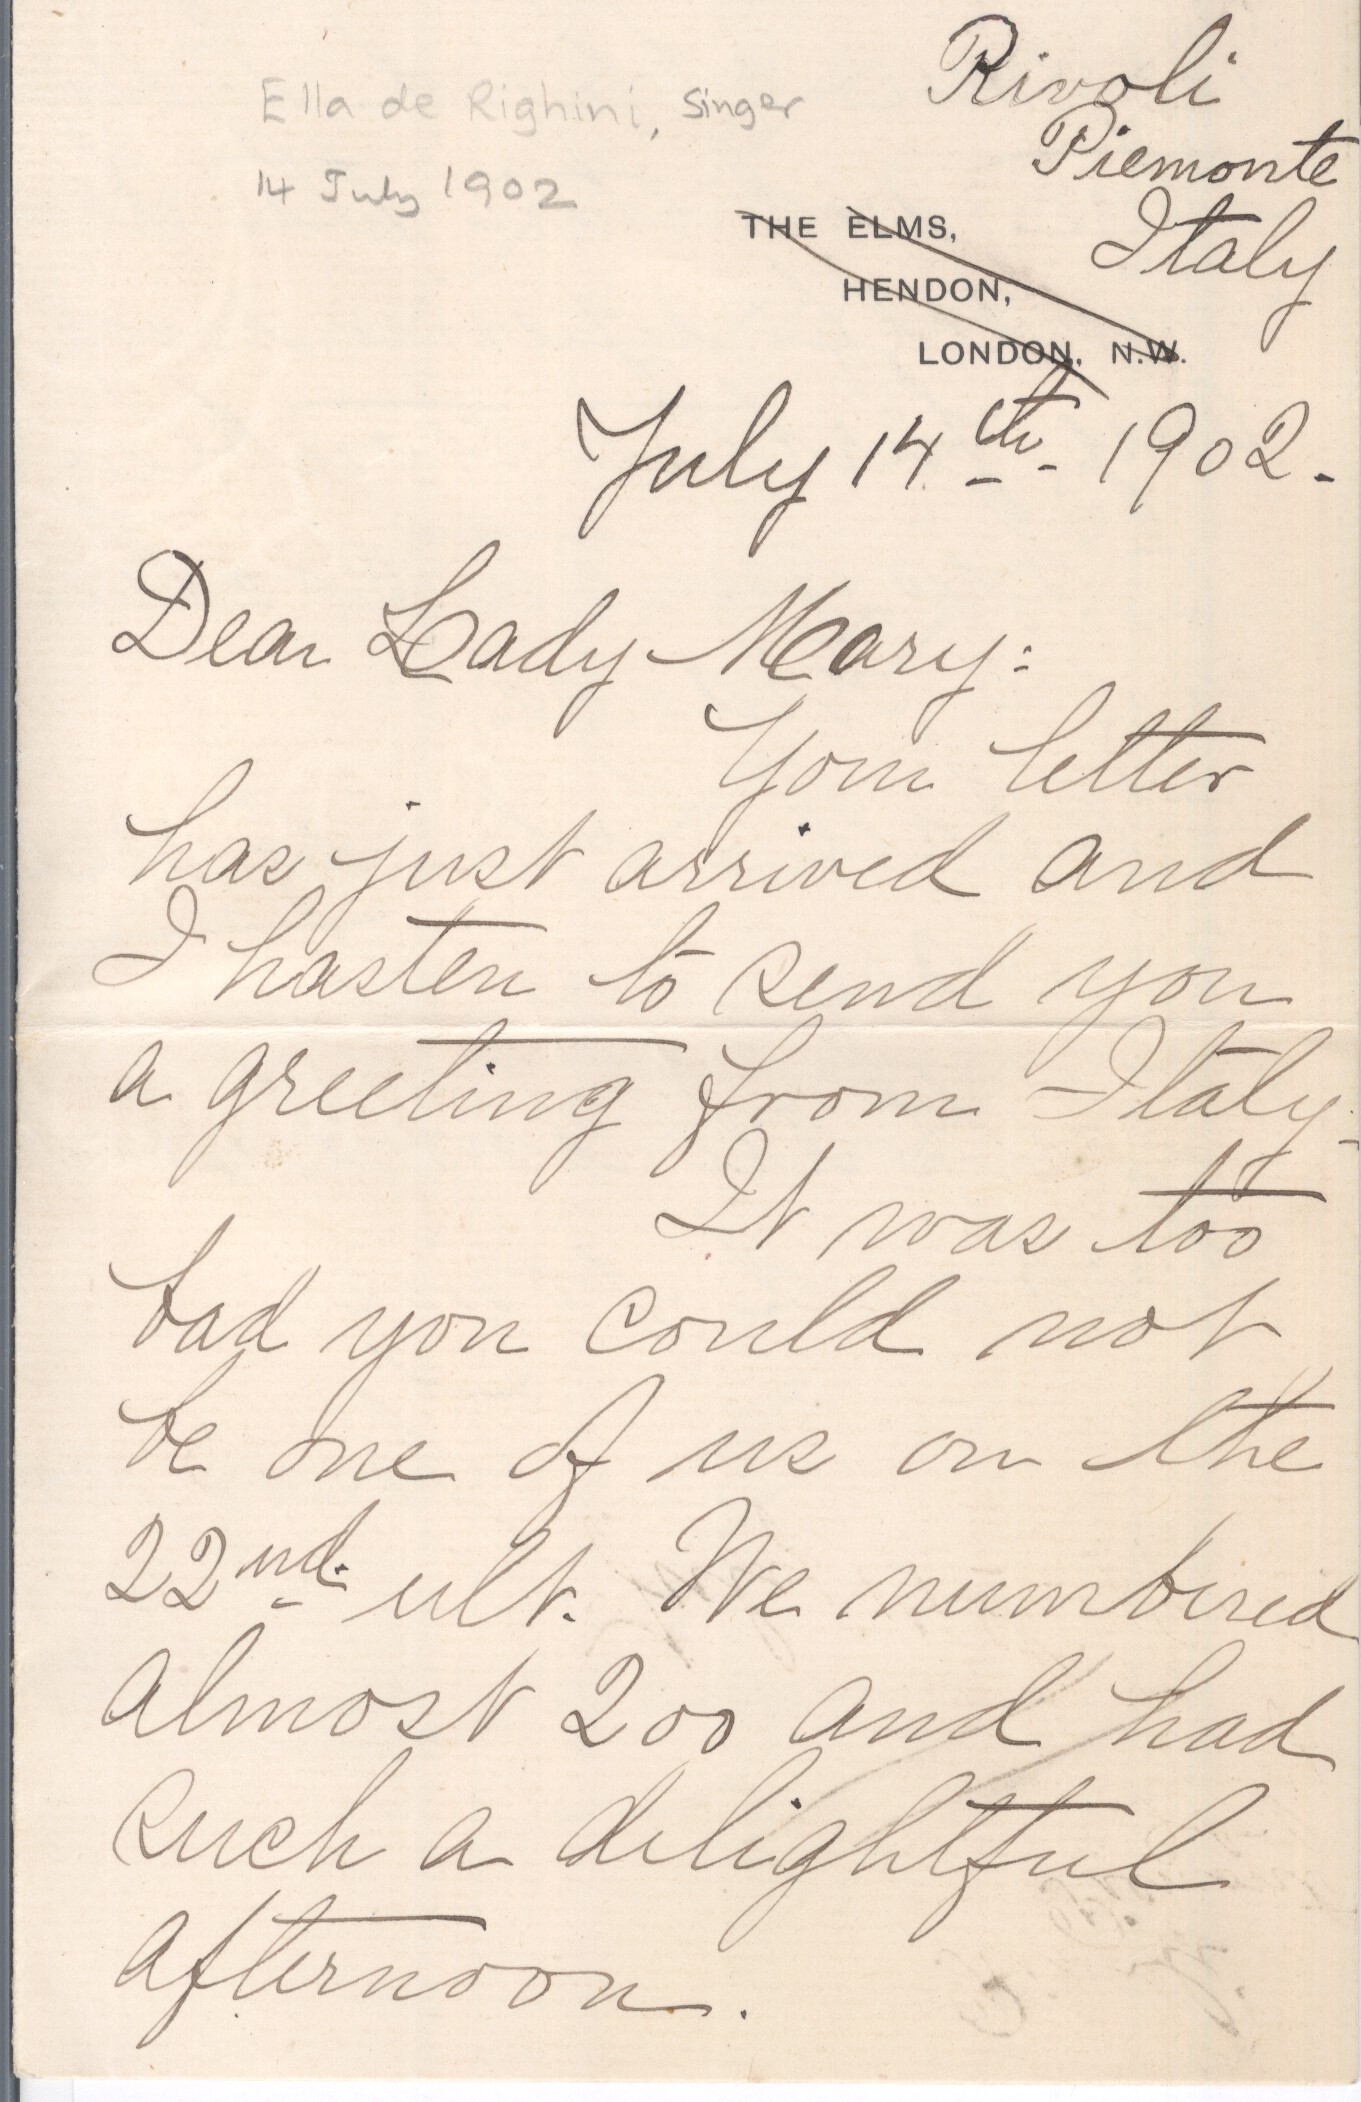 Ella de Righini, Singer
14 July 1902
Rivoli
Piemonte
Italy
THE ELMS,
HENDON,
LONDON, N.W.
July 14th. 1902.
Dear Lady Mary:
Your letter
has just arrived and
I hasten to send you
a greeting from Italy-
It was too
bad you could not
be one of us on the
22nd. ult. We numbered
almost 200 and had
such a delightful
afternoon.